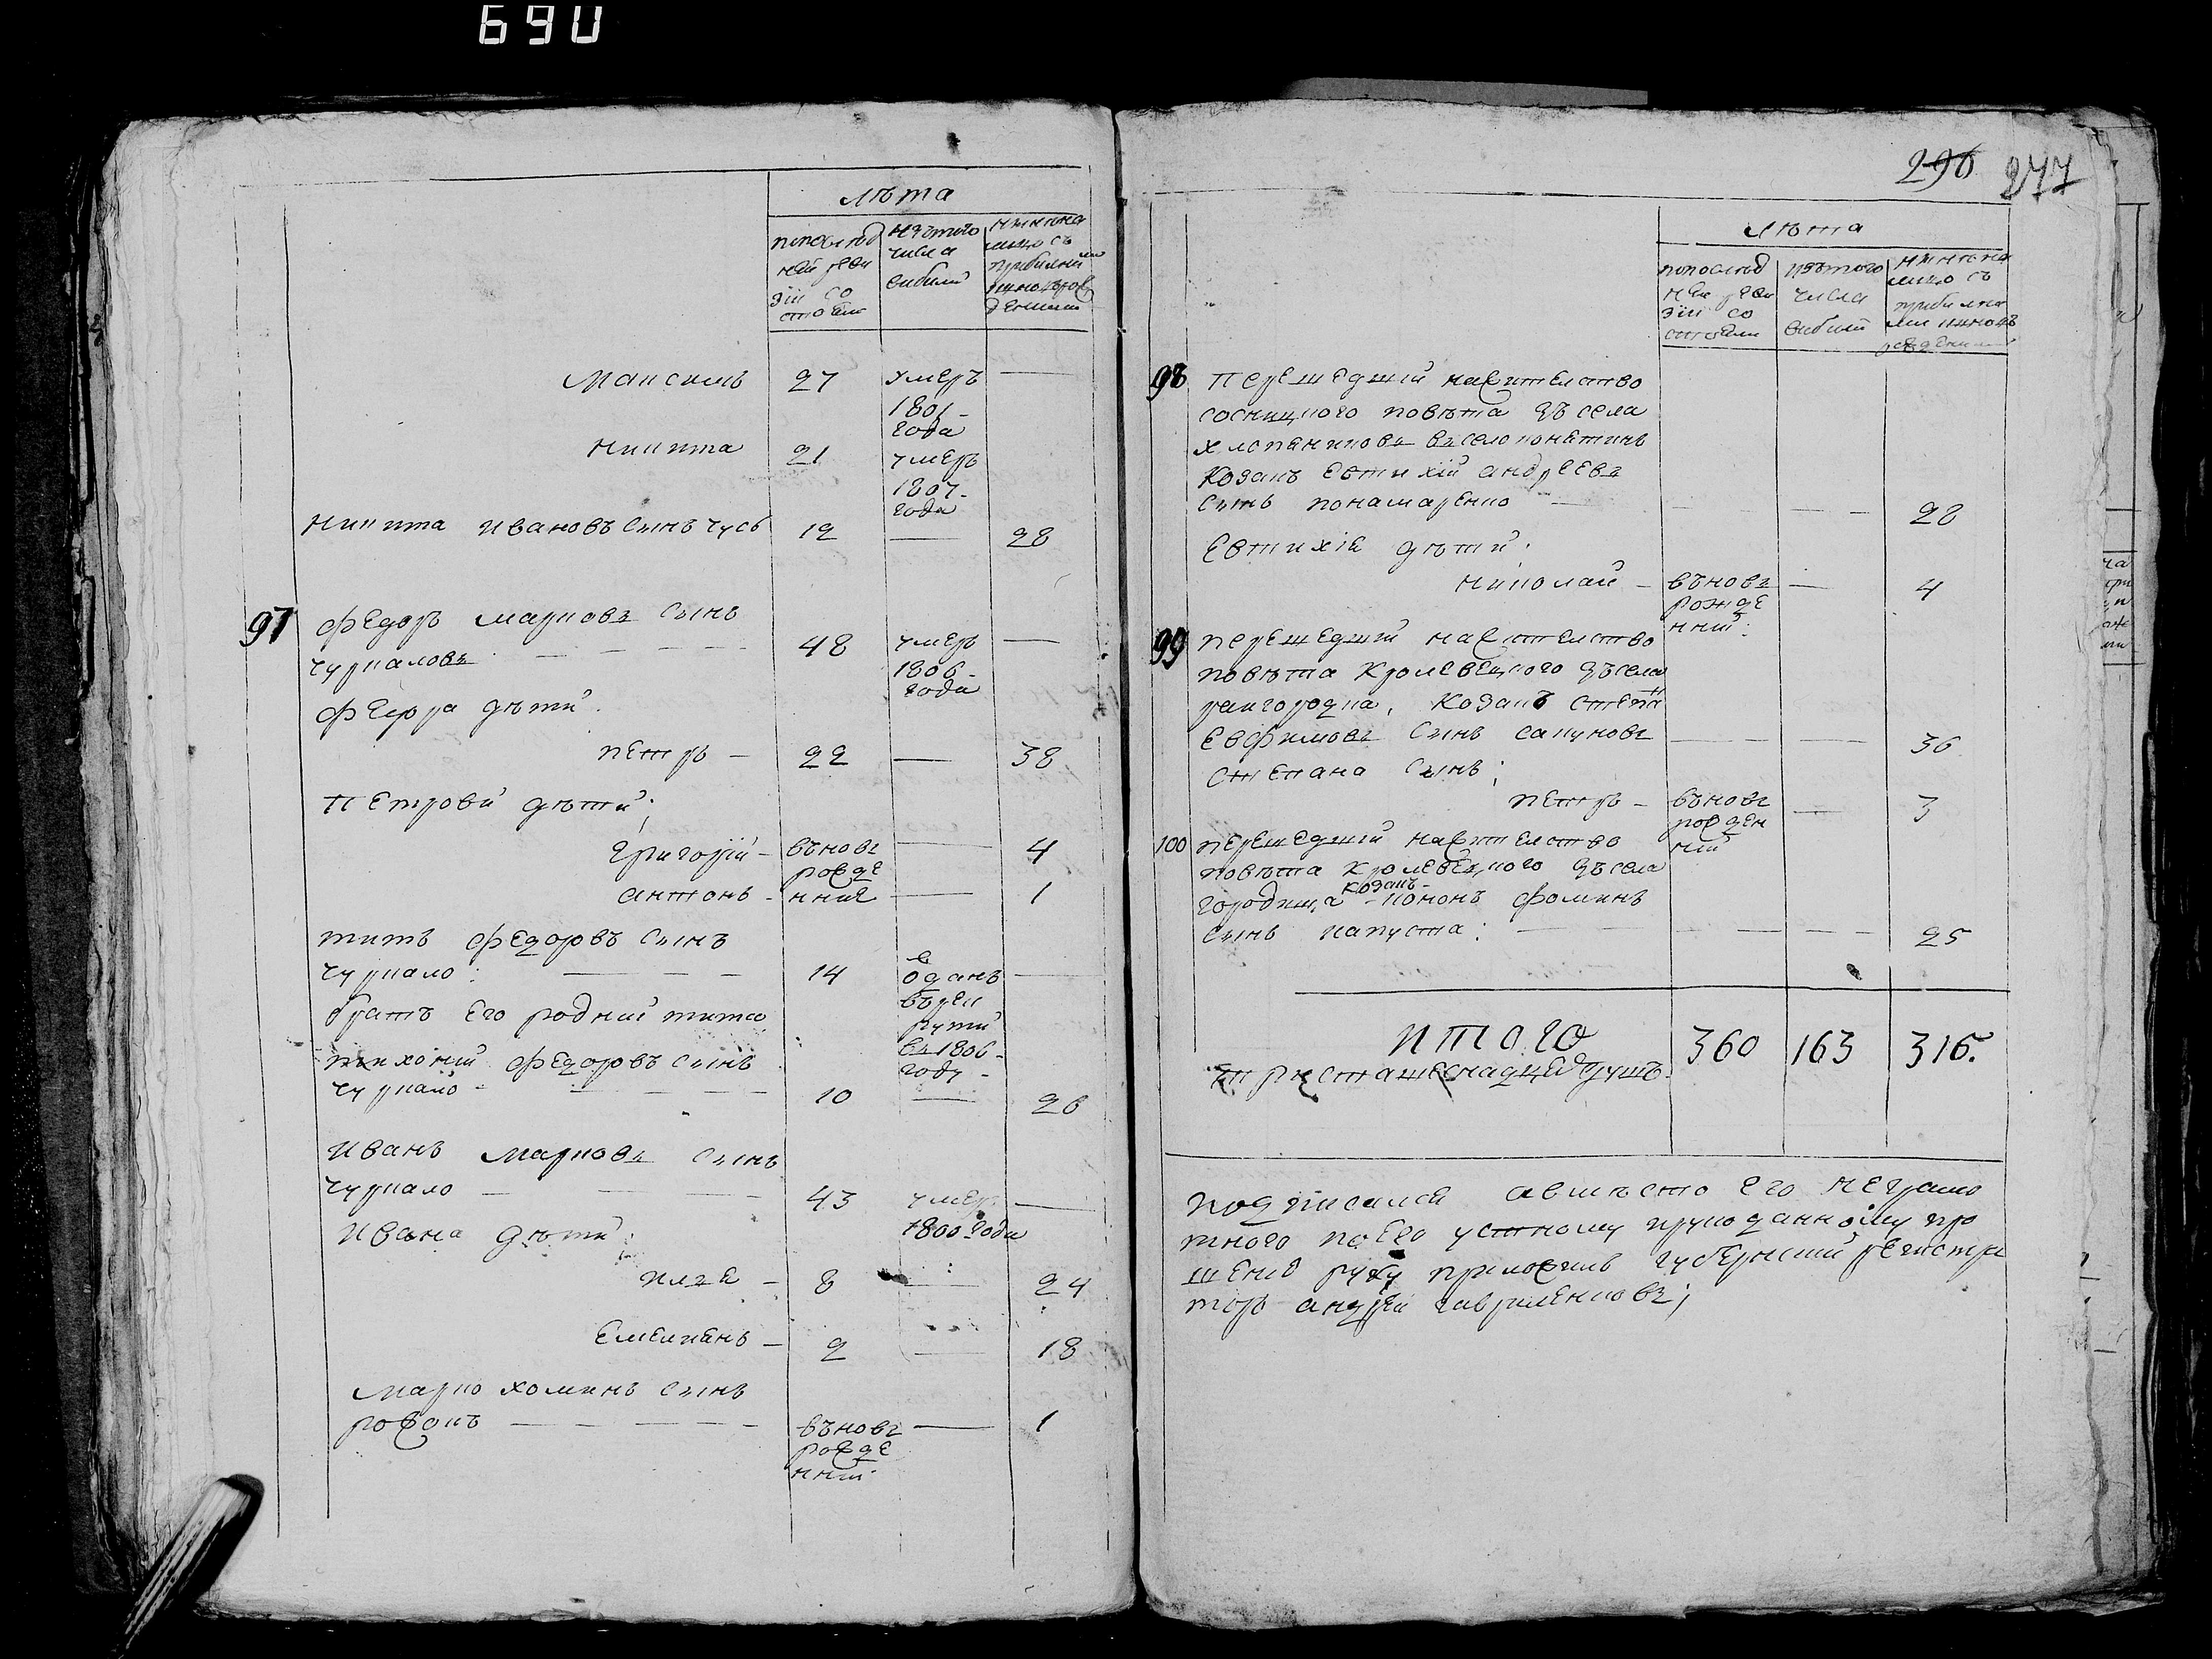 690
лѣта
попослѣд
ней реви
зіи со
стояли
изтого
числа
выбыли
нынѣна
лицо съ
прибылыми
Максимъ 27 умеръ —
1801-
года
Никита 21 умеръ
1807-
года
Никита Ивановъ сынъ чусь 12 — 28
97 Федоръ марковъ сынъ
чуркаловъ — — — — 48 умеръ —
1806-
года
Федора дѣти.
петръ — 22 — 38
Петрови дѣти;
григорій — въновь — 4
рожде
антонъ - нние — 1
титъ Федоровъ сынъ
чуркало: — — — 14 одданъ —
братъ его родний тита въреи
руты
тихоній Федоровъ сынъ въ1806-
году -
чуркало - — — — 10 — 26
Иванъ марковъ сынъ
чуркало — — — 43 умер —
1800 года
Ивана дѣти:
илѣя — 8 — 24
Емелиянъ — 2 — 18
Марко хоминъ сынъ
рожокъ — — — — въновь — 1
рожде
нний.
296 277
лѣта
попослѣд
ней реви
зіи со
стояли
изтого
числа
выбыли
нынѣна
лицо съ
прибылы
ми
98 Перешедший нажителство
сосницкого повѣта зъ села
хлопениковъ въ село конетипъ
Козакъ Евтихій андреевъ
сынъ понамаренко — — — — 28
Евтихіе дѣти:
Николай — въновь — 4
рожде
нний:
99 перешедший нажителство
повѣта Кролевецкого зъ села
райгородка, Козакъ степанъ
Евфимовъ сынъ сапуновъ — — — 36
Степана сынъ;
петръ — въновь — 3
рожден
ний
100 перешедший нажителство
повѣта Кролевецкого зъ села
козакъ-
городища кононъ фоминъ
сынъ капуста: — — — — — 25
ИТОГО 360 163 316.
триста шеснадцей душъ.
подписался авмѣсто его неграмо
тного поего устному рукоданному про
шению руку приложилъ губернский регистра
торъ андрей гавриленковъ;